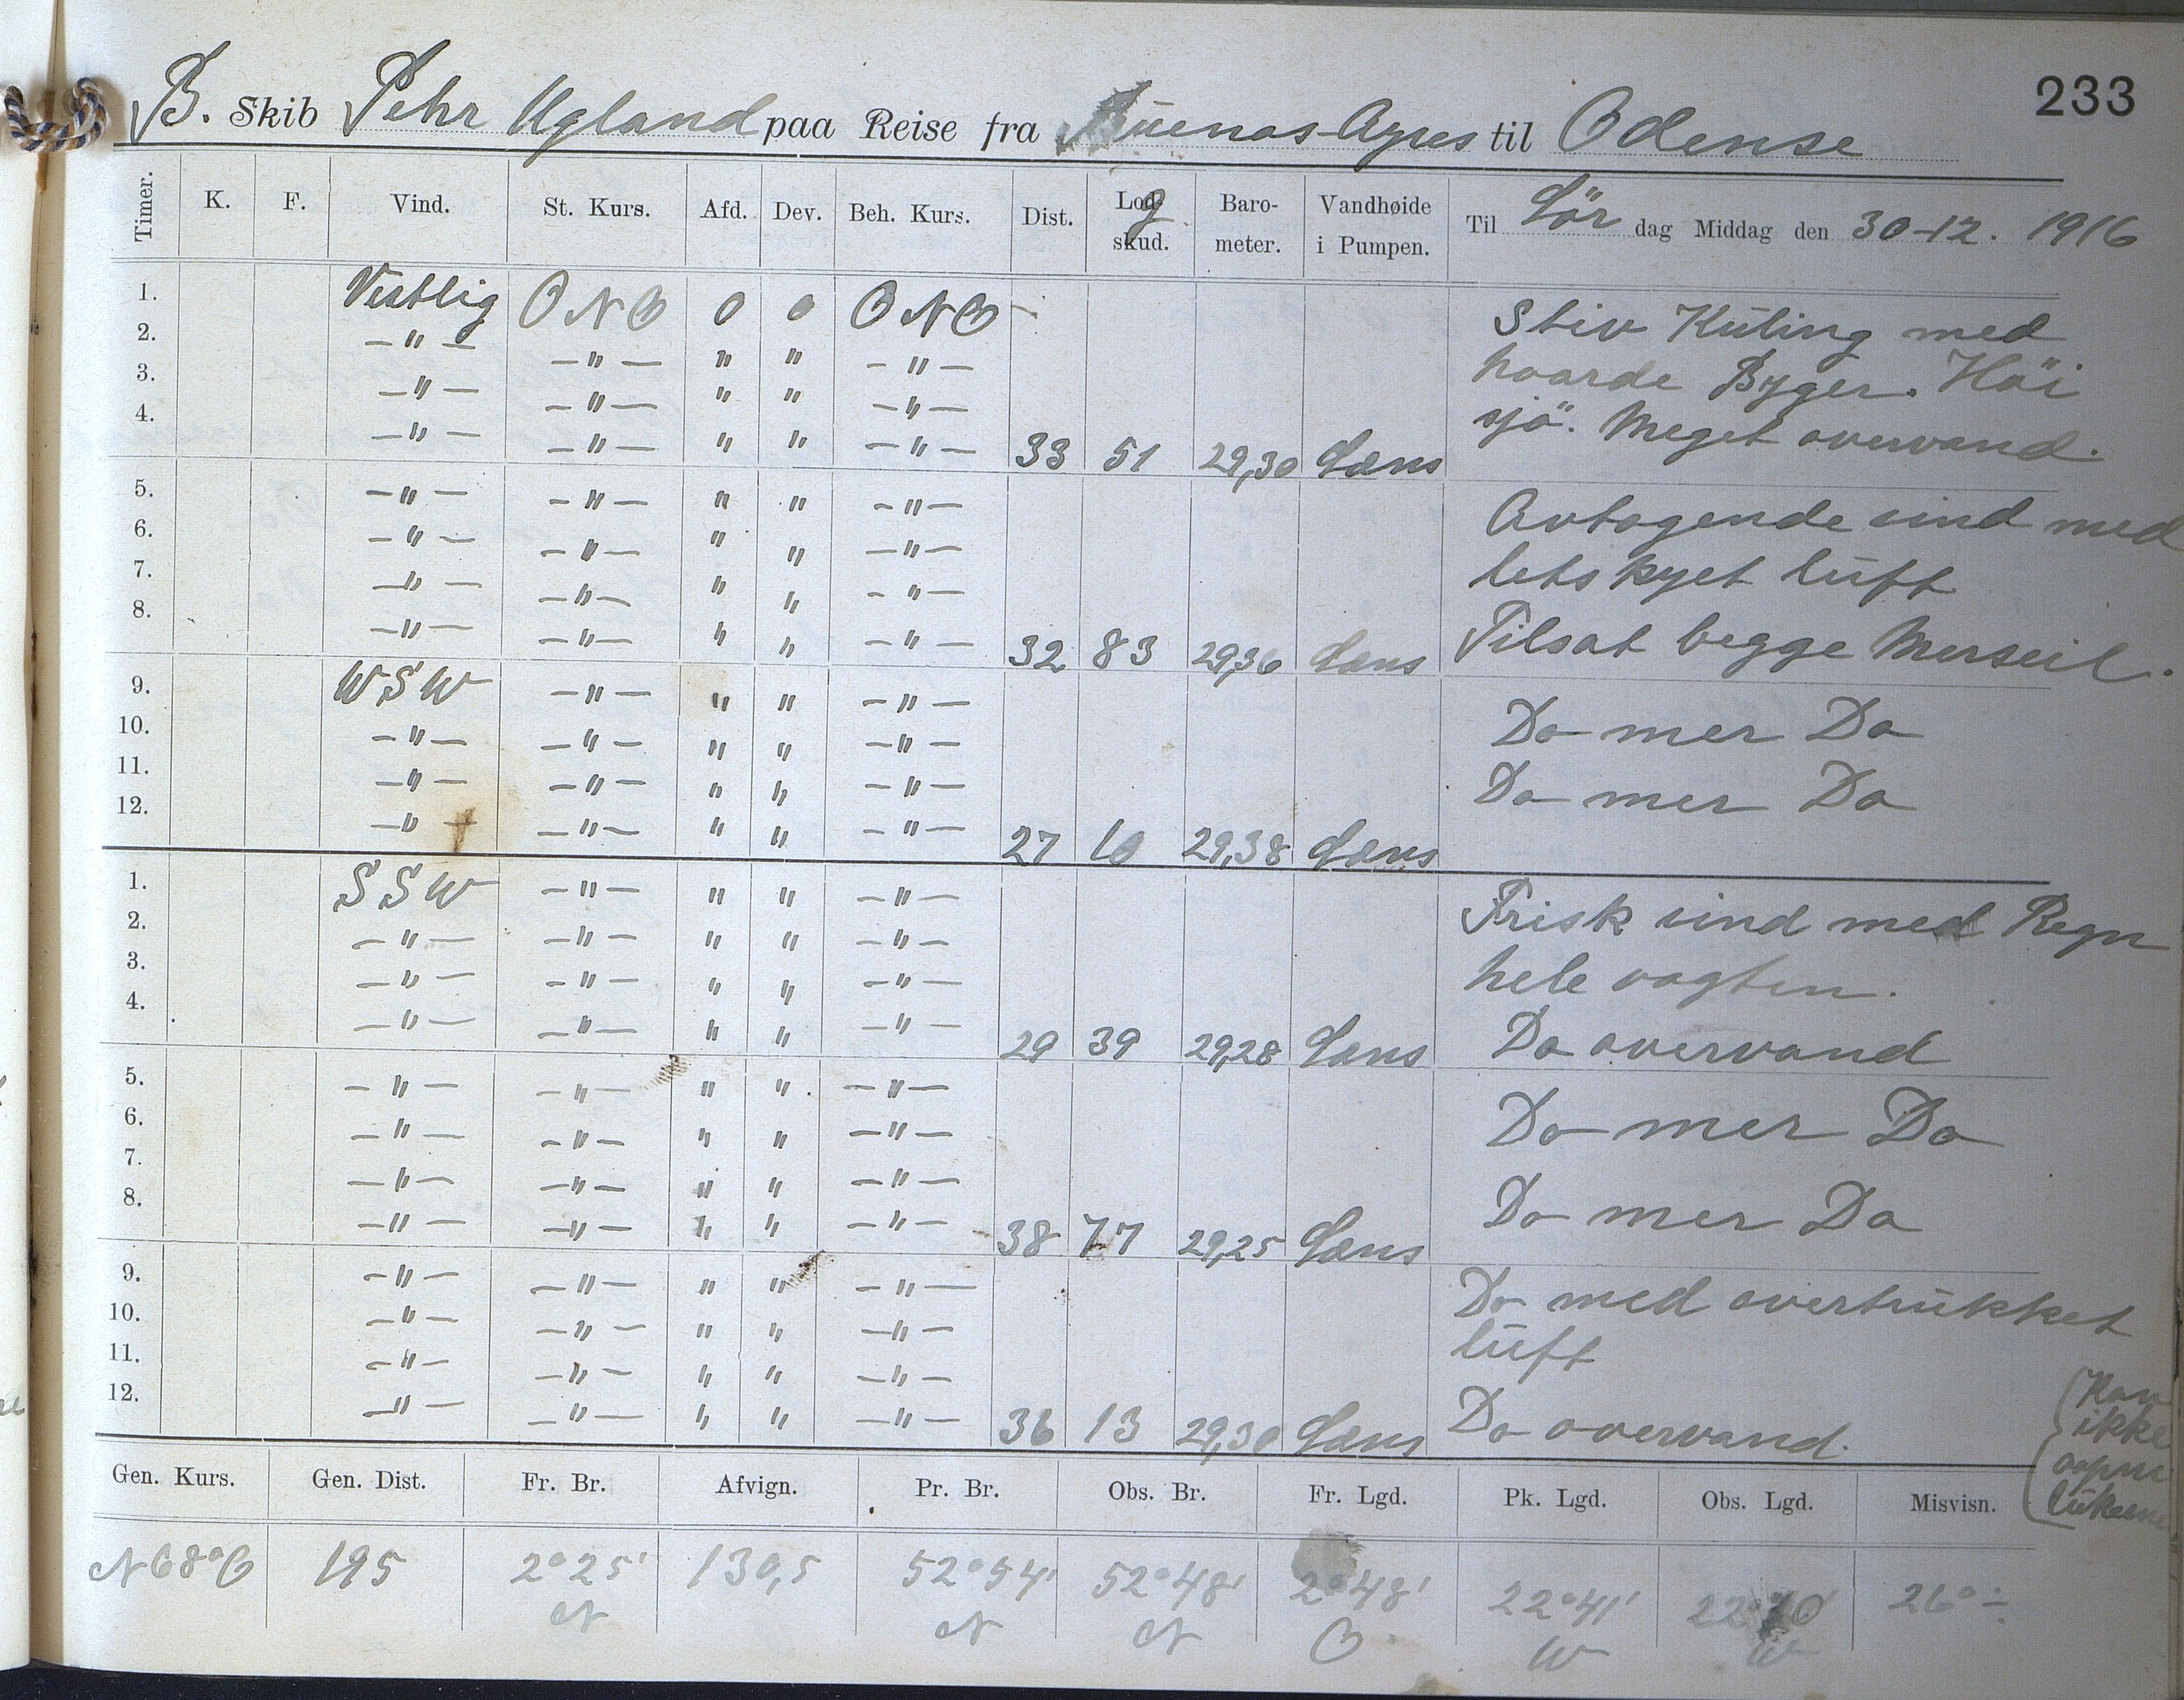 233
B. Skib Pehr Ugland paa Reise fra Buenos-Ayres til Odense
Timer. K. F. Vind. St. Kurs. Afd. Dev. Beh. Kurs. Dist. Log skud. Baro- meter. Vandhøide i Pumpen. Til Lör dag Middag den 30-12. 1916
1. Vestlig ONO 0 0 ONO Stiv Küling med
2. -"- -"- " " -"- haarde Byger. Höi
3. -"- -"- " " -"- sjö. Meget overvand.
4. -"- -"- " " -"- 33 51 29,30 Læns
5. -"- -"- " " -"- Avtagende vind med
6. -"- -"- " " -"- letskyet lüft
7. -"- -"- " " -"-
8. -"- -"- " " -"- 32 83 29,36 Læns Tilsat begge Merseil.
9. WSW -"- " " -"- Do mer Do
10. -"- -"- " " -"-
11. -"- -"- " " -"- Do mer Do
12. -"- -"- " " -"- 27 10 29,38 Læns
1. SSW -"- " " -"- Frisk vind med Regn
2. -"- -"- " " -"-
3. -"- -"- " " -"- hele vagten.
4. -"- -"- " " -"- 29 39 29,28 Læns Do overvand
5. -"- -"- " " -"- Do mer Do
6. -"- -"- " " -"-
7. -"- -"- " " -"- Do mer Do
8. -"- -"- " " -"- 38 77 29,25 Læns
9. -"- -"- " " -"- Do med overtrükket
10. -"- -"- " " -"- lüft
11. -"- -"- " " -"-
12. -"- -"- " " -"- 36 13 29,30 Læns Do overvand.
Kan
ikke
aapne
lükerne
Gen. Kurs. Gen. Dist. Fr. Br. Afvign. Pr. Br. Obs. Br. Fr. Lgd. Pk. Lgd. Obs. Lgd. Misvisn.
N68°O 195 2°25' 130,5 52°54' 52°48' 2°48' 22°41' 26°÷
N N N O W W